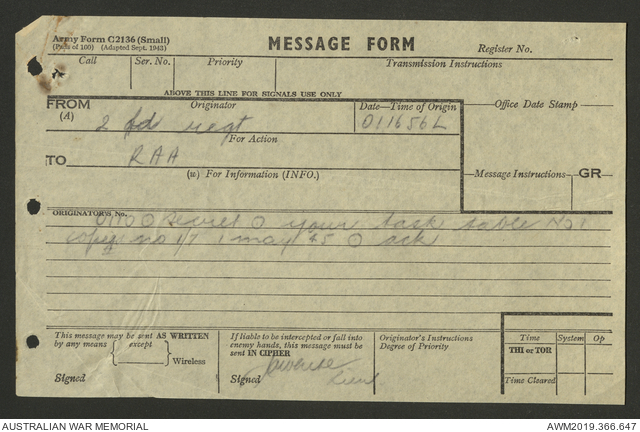 Army Form C2136 (Small)
(Pads of 100) (Adapted Sept. 1943)
MESSAGE FORM
Register No.
Call Ser. No. Priority Transmission Instructions
ABOVE THIS LINE FOR SIGNALS USE ONLY
FROM Originator Date—Time of Origin Office Date Stamp
(A) 2 fd regt 011656L
For Action
TO RAA
(W) For Information (INFO.) Message Instructions GR
ORIGINATOR'S No.
O secret O your task table No 1
copy no 1/7 1 may 45 O ack
This message may be sent AS WRITTEN
by any means { except } Wireless
Signed
If liable to be intercepted or fall into
enemy hands, this message must be
sent IN CIPHER
Signed Lieut
Originator's Instructions
Degree of Priority
Time System Op
THI or TOR
Time Cleared
AUSTRALIAN WAR MEMORIAL AWM2019.366.647